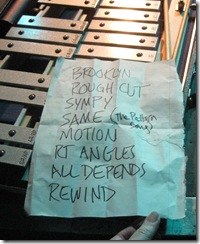 BROOKLYN
ROUGH CUT
SYMPY
SAME (The Pattern Song)
MOTION
RT ANGLES
ALL DEPENDS
REWIND